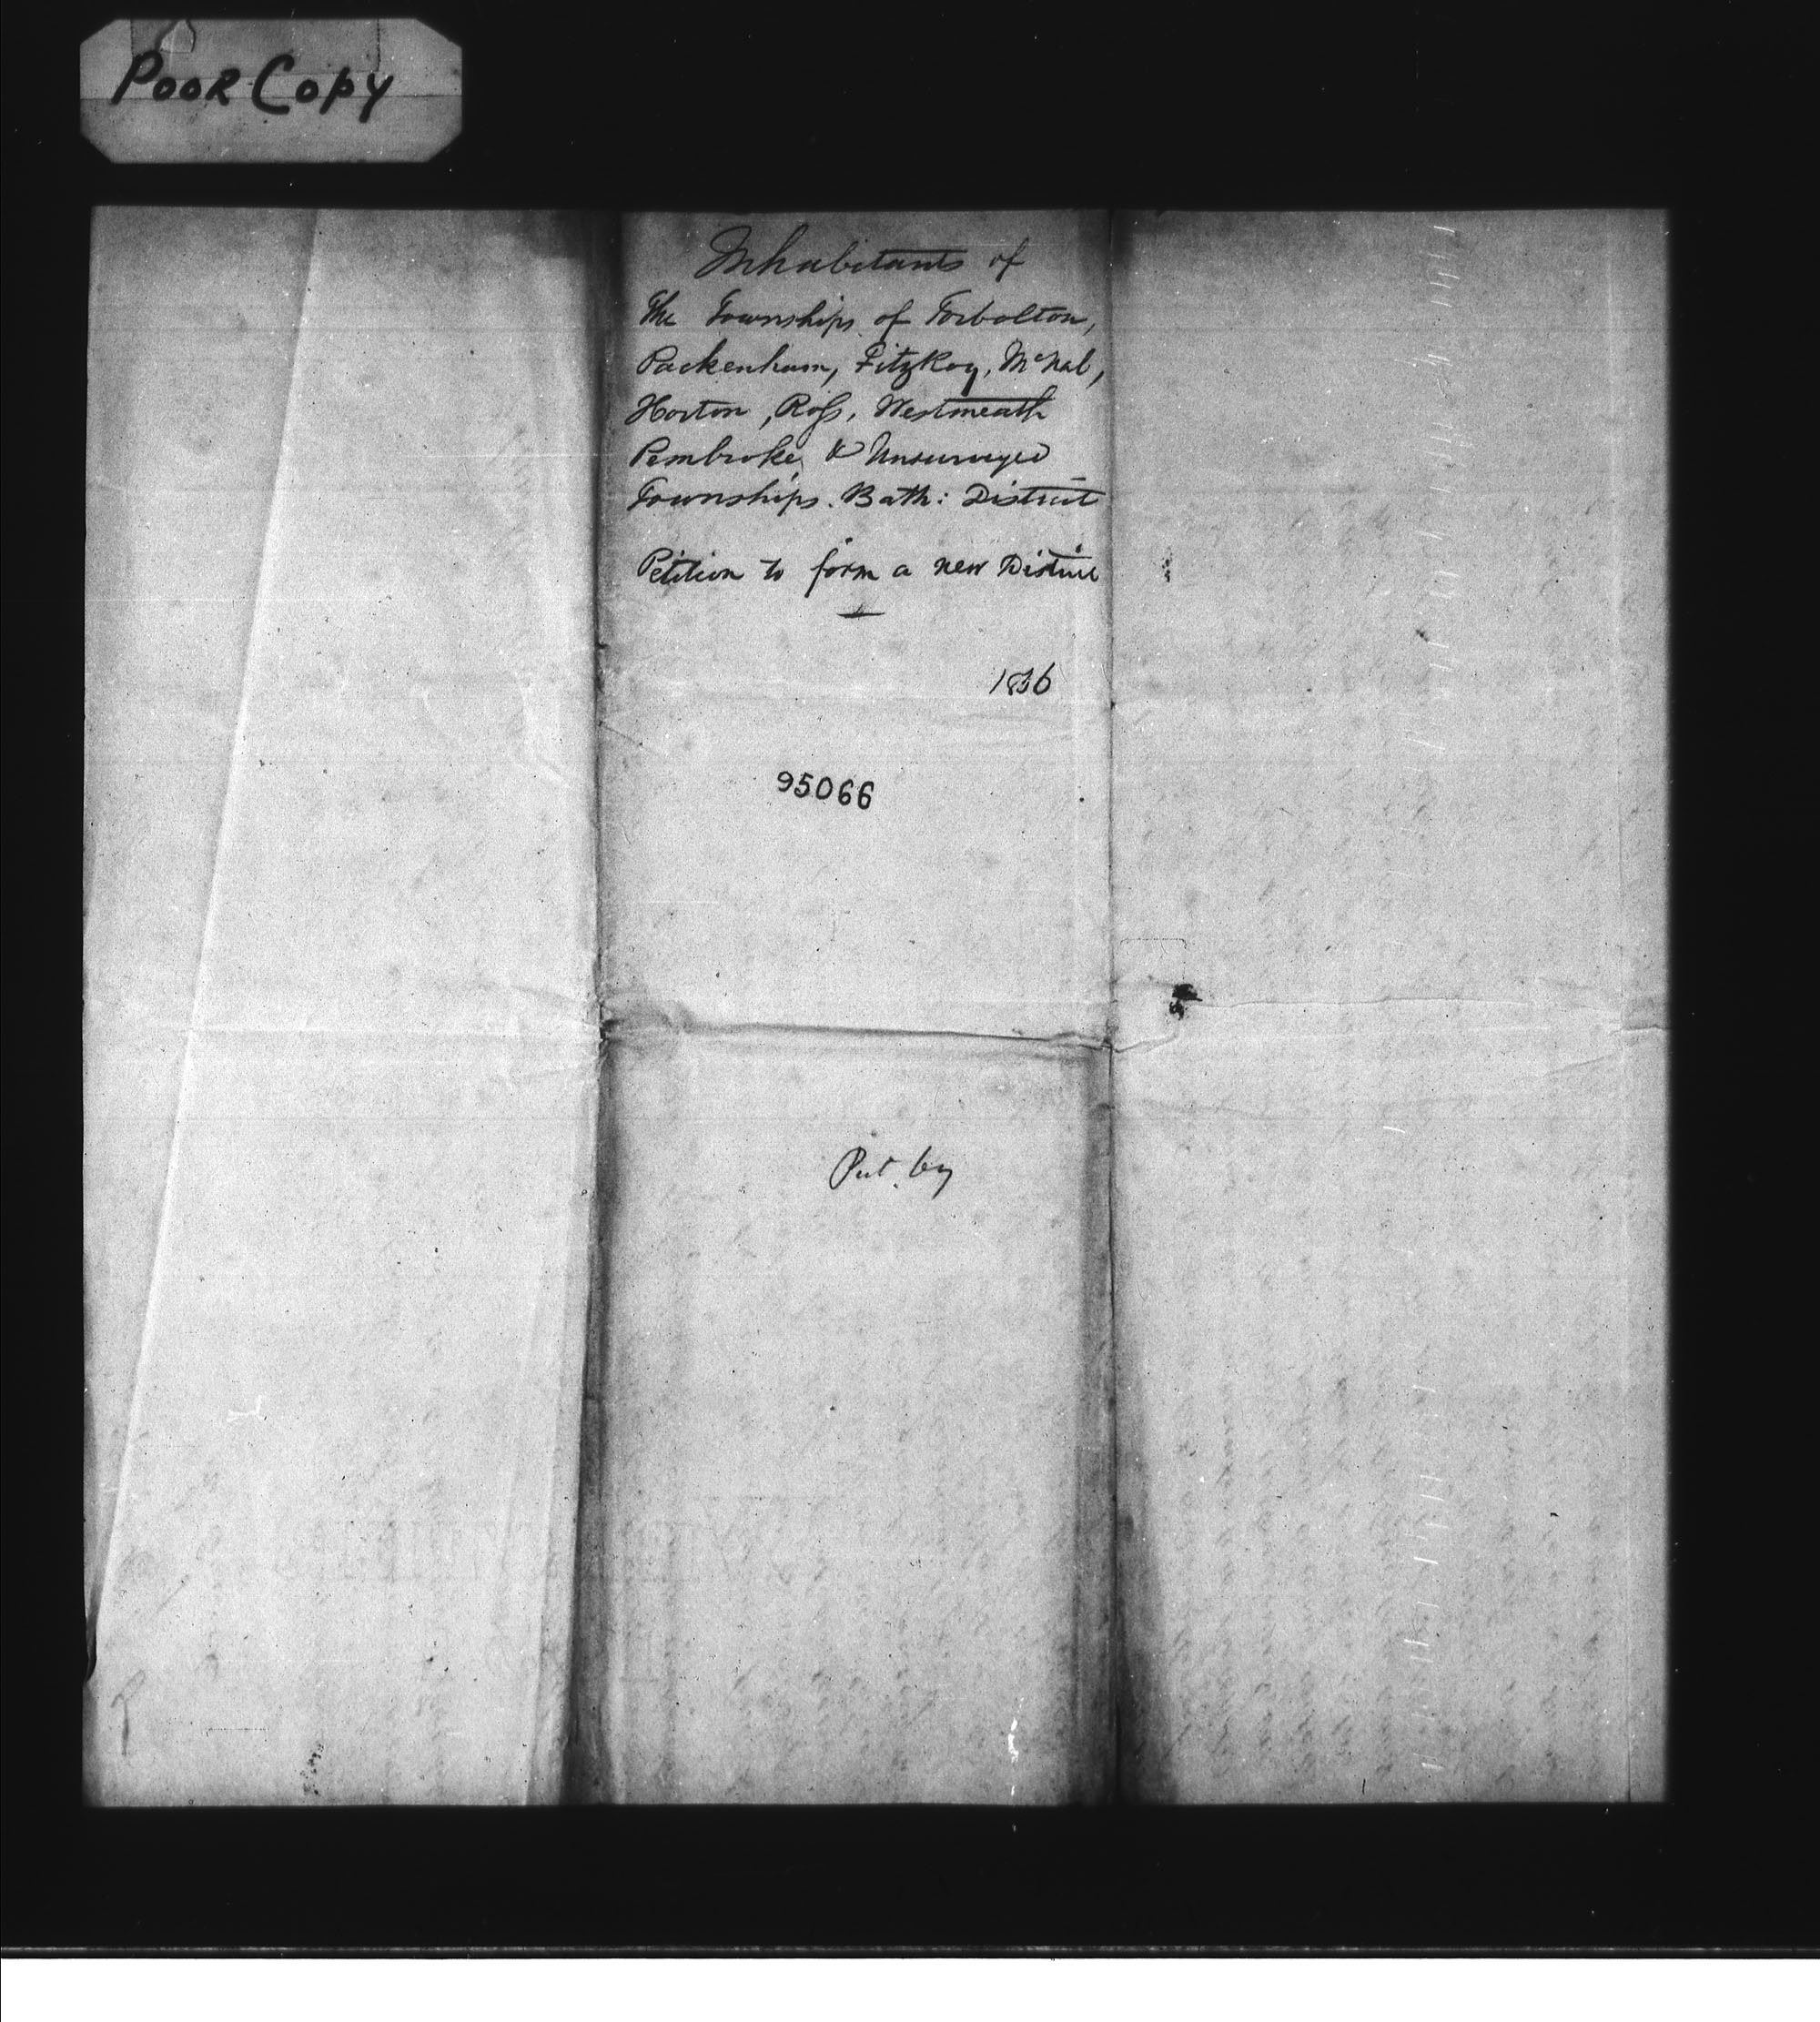 Poor Copy
Inhabitants of
The Townships of Torbolton,
Packenham, FitzRoy, McNab,
Horton, Ross, Westmeath
Pembroke & Unsurveyed
Townships. Bath: District
Petition to form a new District
1836
95066
Put by